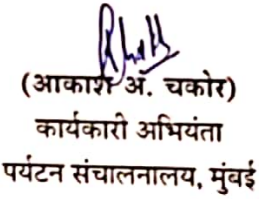 (आकाश अ. चकोर)
कार्यकारी अभियंता
पर्यटन संचालनालय, मुंबई